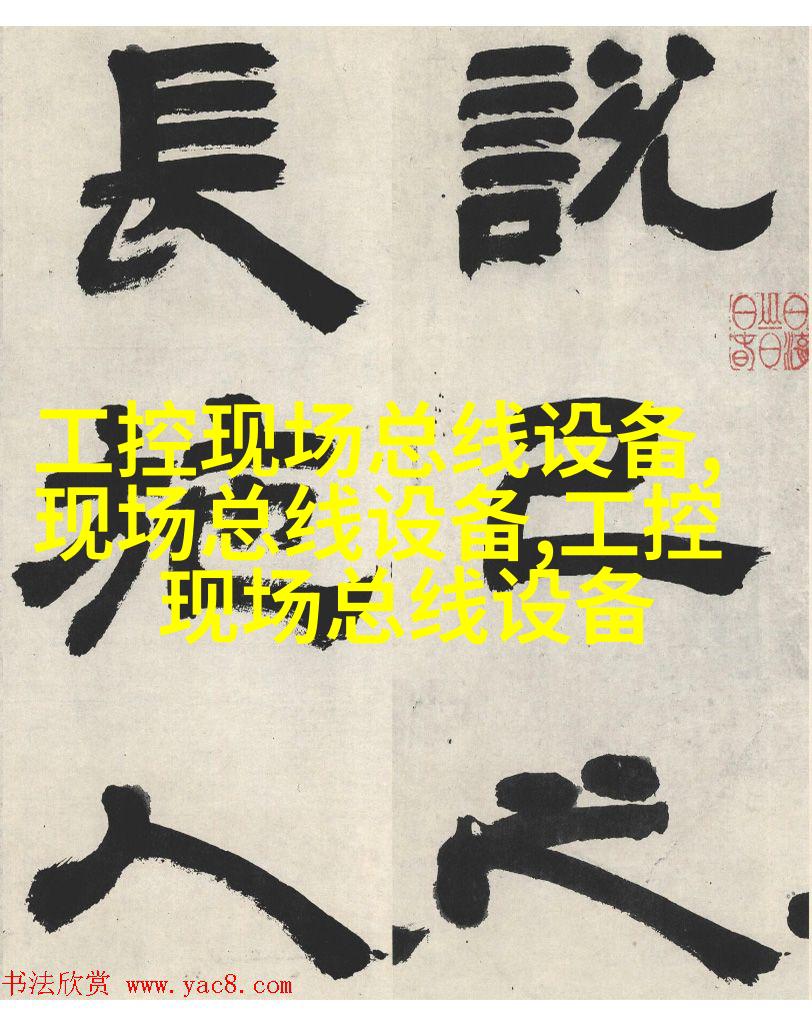 說己之
長施人
工控现场总线设备,
现场总线设备,工控
现场总线设备
书法欣赏 www.yac8.com